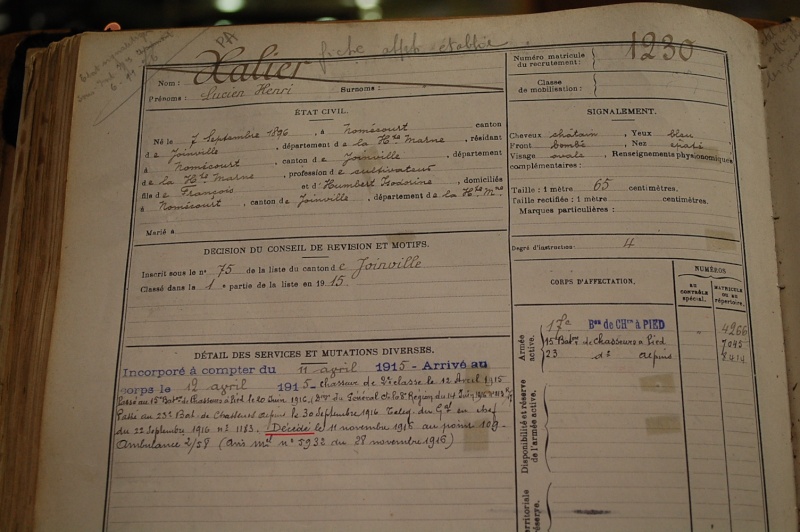 PA
fiche alph établie
Nom : Xalier
Prénoms : Lucien Henri Surnoms :
Numéro matricule du recrutement : 1230
Classe de mobilisation :
ÉTAT CIVIL.
Né le 7 Septembre 1896, à Nomécourt, canton
de Joinville, département de la Hte Marne, résidant
à Nomécourt, canton de Joinville, département
de la Hte Marne, profession de cultivateur
fils de François et d'Humbert Isodorine, domiciliés
à Nomécourt, canton de Joinville, département de la Hte Mne
Marié à
SIGNALEMENT.
Cheveux châtain, Yeux bleu
Front bombé, Nez
Visage ovale, Renseignements physionomiques
complémentaires :
Taille : 1 mètre 65 centimètres.
Taille rectifiée : 1 mètre centimètres.
Marques particulières :
Degré d'instruction : 4
DÉCISION DU CONSEIL DE REVISION ET MOTIFS.
Inscrit sous le n° 75 de la liste du canton de Joinville
Classé dans la 1e partie de la liste en 1915
CORPS D'AFFECTATION.
NUMÉROS
AU CONTRÔLE spécial.
MATRICULE ou au répertoire.
Armée active.
17e Bon de CHrs à PIED 4266
15e Baton de Chasseurs à Pied 7042
23 do à pied 8414
Disponibilité et réserve de l'armée active.
territoriale réserve.
DÉTAIL DES SERVICES ET MUTATIONS DIVERSES.
Incorporé à compter du 11 avril 1915 - Arrivé au
corps le 12 avril 1915 - chasseur de 2e classe le 12 Avril 1915
Passé au 15e Baton de Chasseurs à Pied le 20 Juin 1916, du Général Ct la 8e Région du
Passé au 23e Bat. de Chasseurs à pied le 30 Septembre 1916 Teleg. du Gal en chef
du 22 Septembre 1916 n° 1183. Décédé le 11 novembre 1916 au point 109
Ambulance 2/58 (avis mel n° 5932 du 28 novembre 1916)